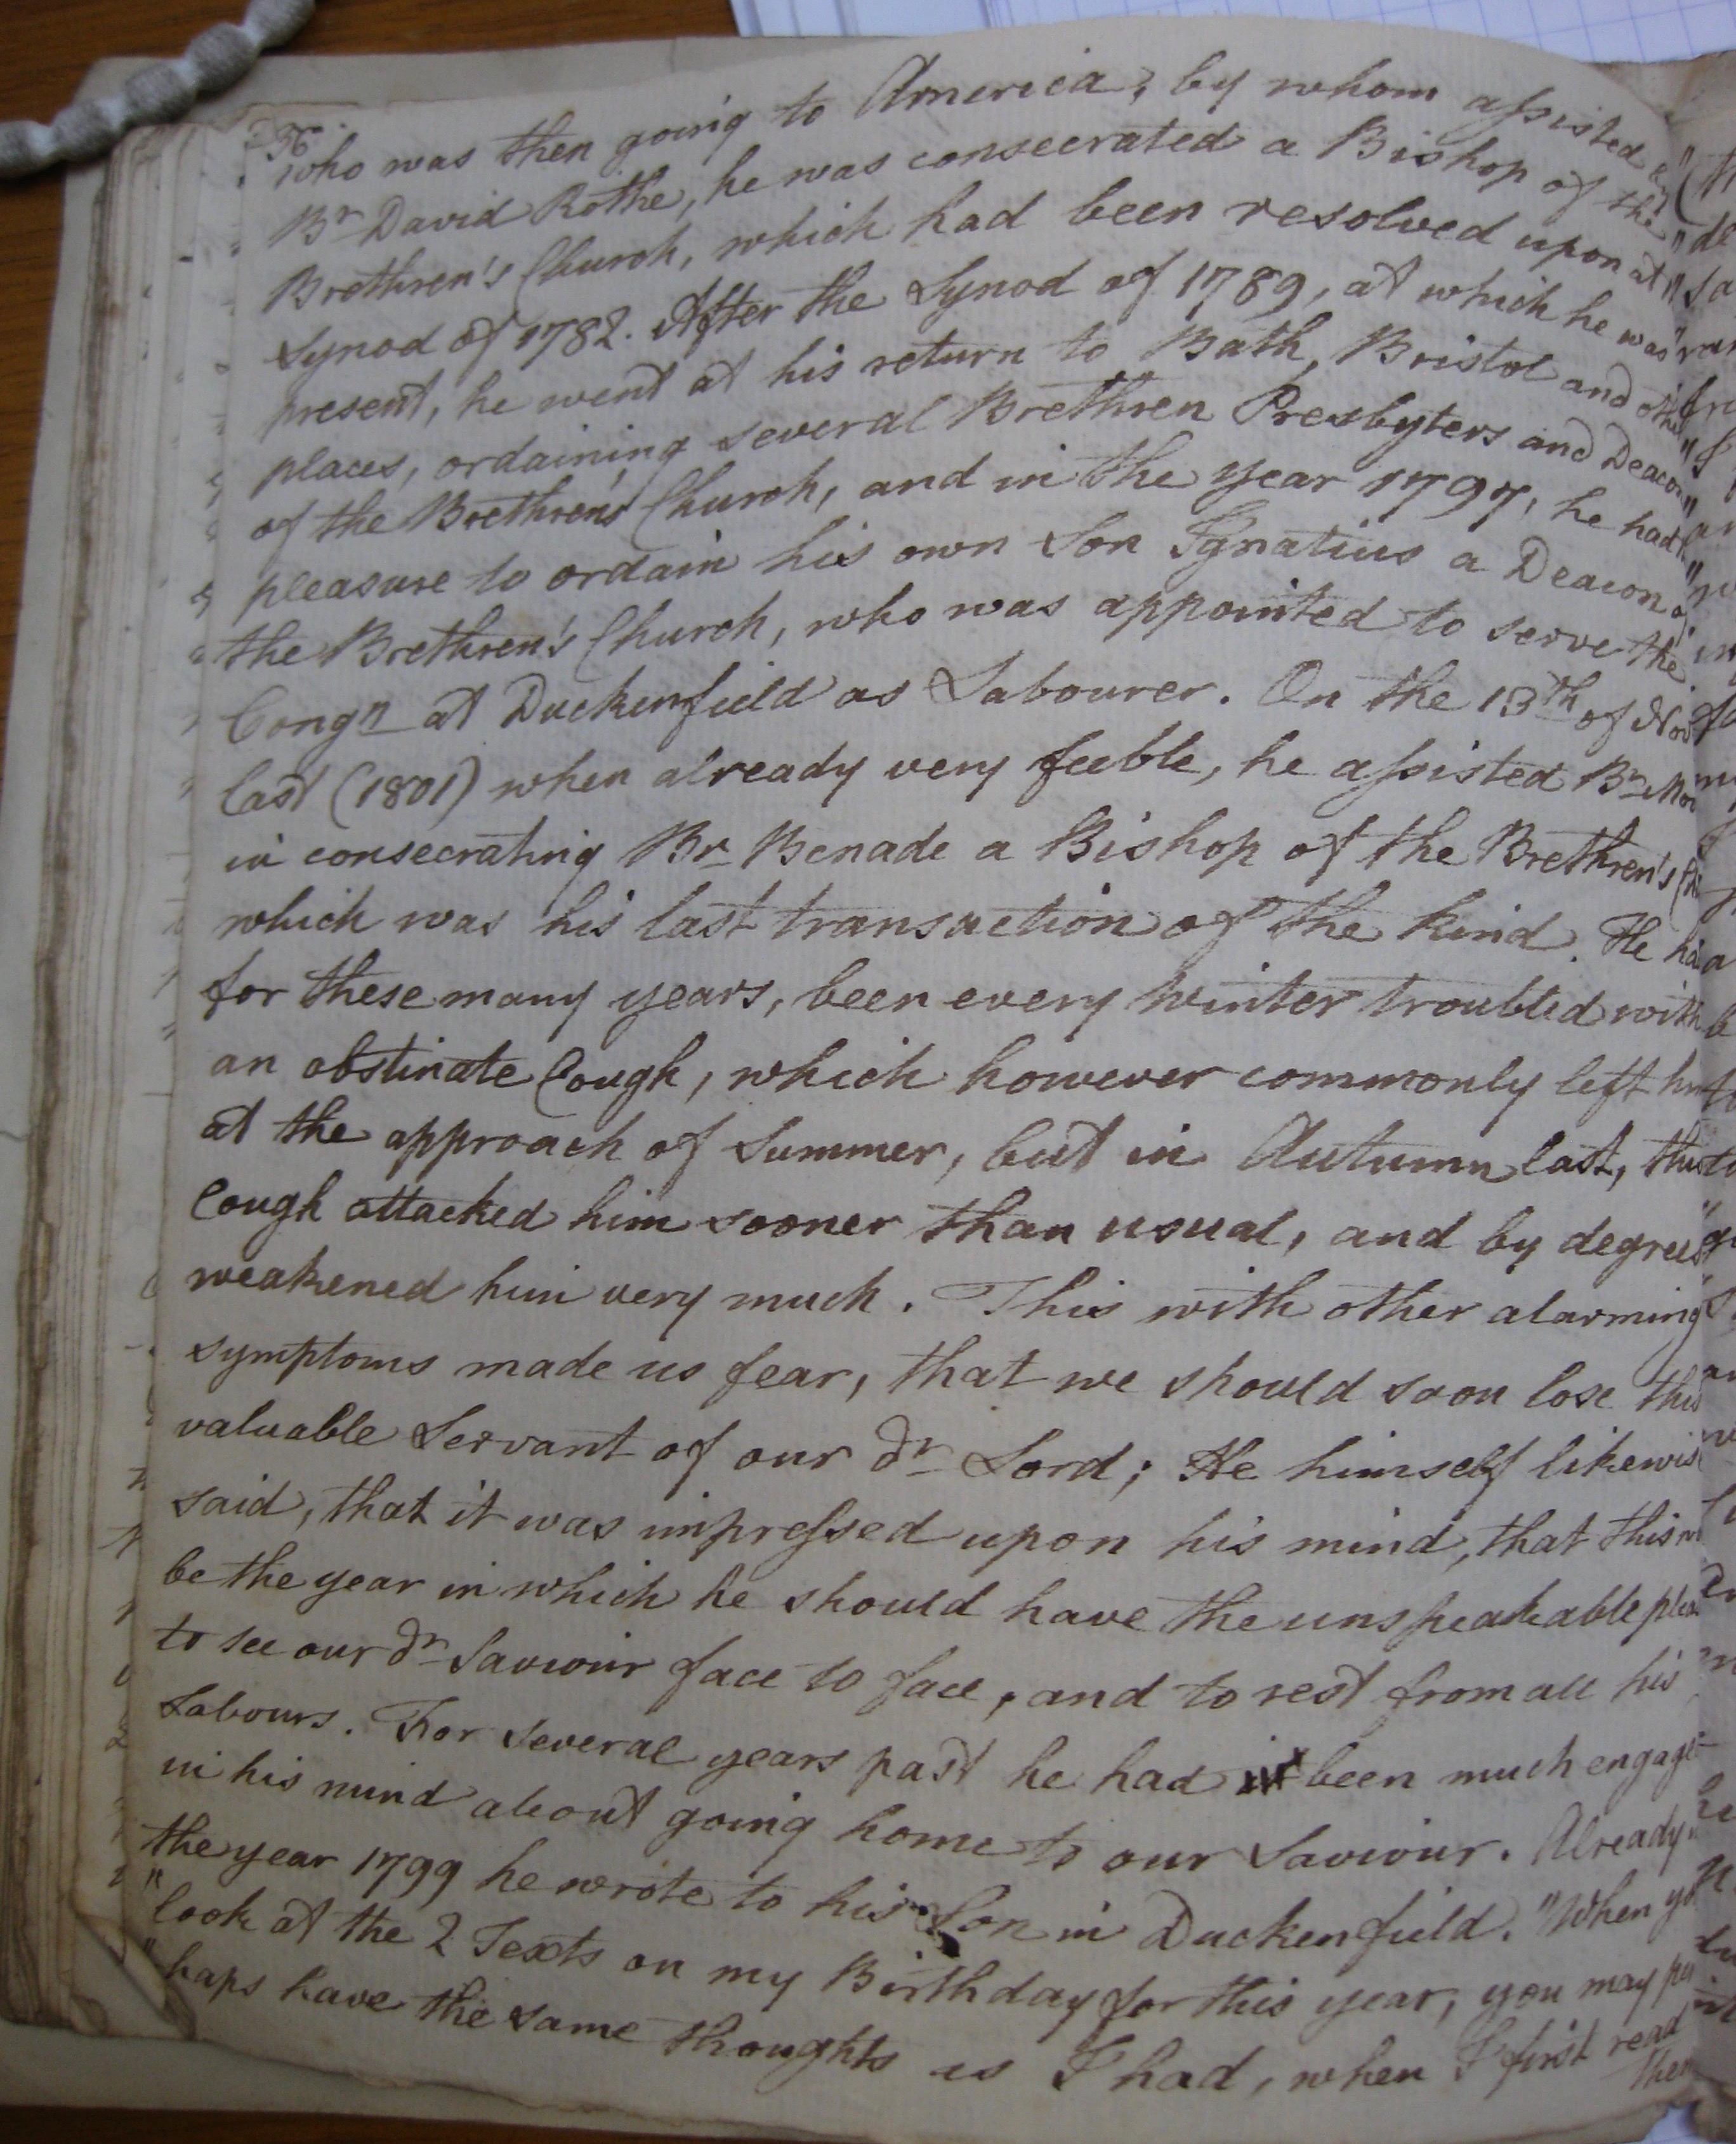 who was then going to America, by whom assisted by
Br David Rothe, he was consecrated a Bishop of the
Brethren's Church, which had been resolved upon at
Synod of 1782. After the Synod of 1789, at which he was
present, he went at his return to Bath, Bristol and other
places, ordaining several Brethren Presbyters and Deacon
of the Brethren's Church, and in the year 1797, he had
pleasure to ordain his own Son Ignatius a Deacon of
the Brethren's Church, who was appointed to serve the
Congn at Duckenfield as Labourer. On the 13th of Nov
last (1801) when already very feeble, he assisted Br
in consecrating Br Benade a Bishop of the Brethren's Ch
which was his last transaction of the kind. He ha
for these many years, been every Winter troubled with
an obstinate Cough, which however commonly left him
at the approach of Summer, but in Autumn last, this
Cough attacked him sooner than usual, and by degrees
weakened him very much. This with other alarming
symptoms made us fear, that we should soon lose this
valuable Servant of our dr Lord; He himself likewis
said, that it was impressed upon his mind, that this
be the year in which he should have the unspeakable plea
to see our dr Saviour face to face, and to rest from all his
Labours. For several years past he had been much engage
in his mind about going home to our Saviour. Already
the year 1799 he wrote to his Son in Duckenfield. "When yo
"look at the 2 Texts on my Birthday for this year, you may per
"haps have the same thoughts as I had, when I first read
them